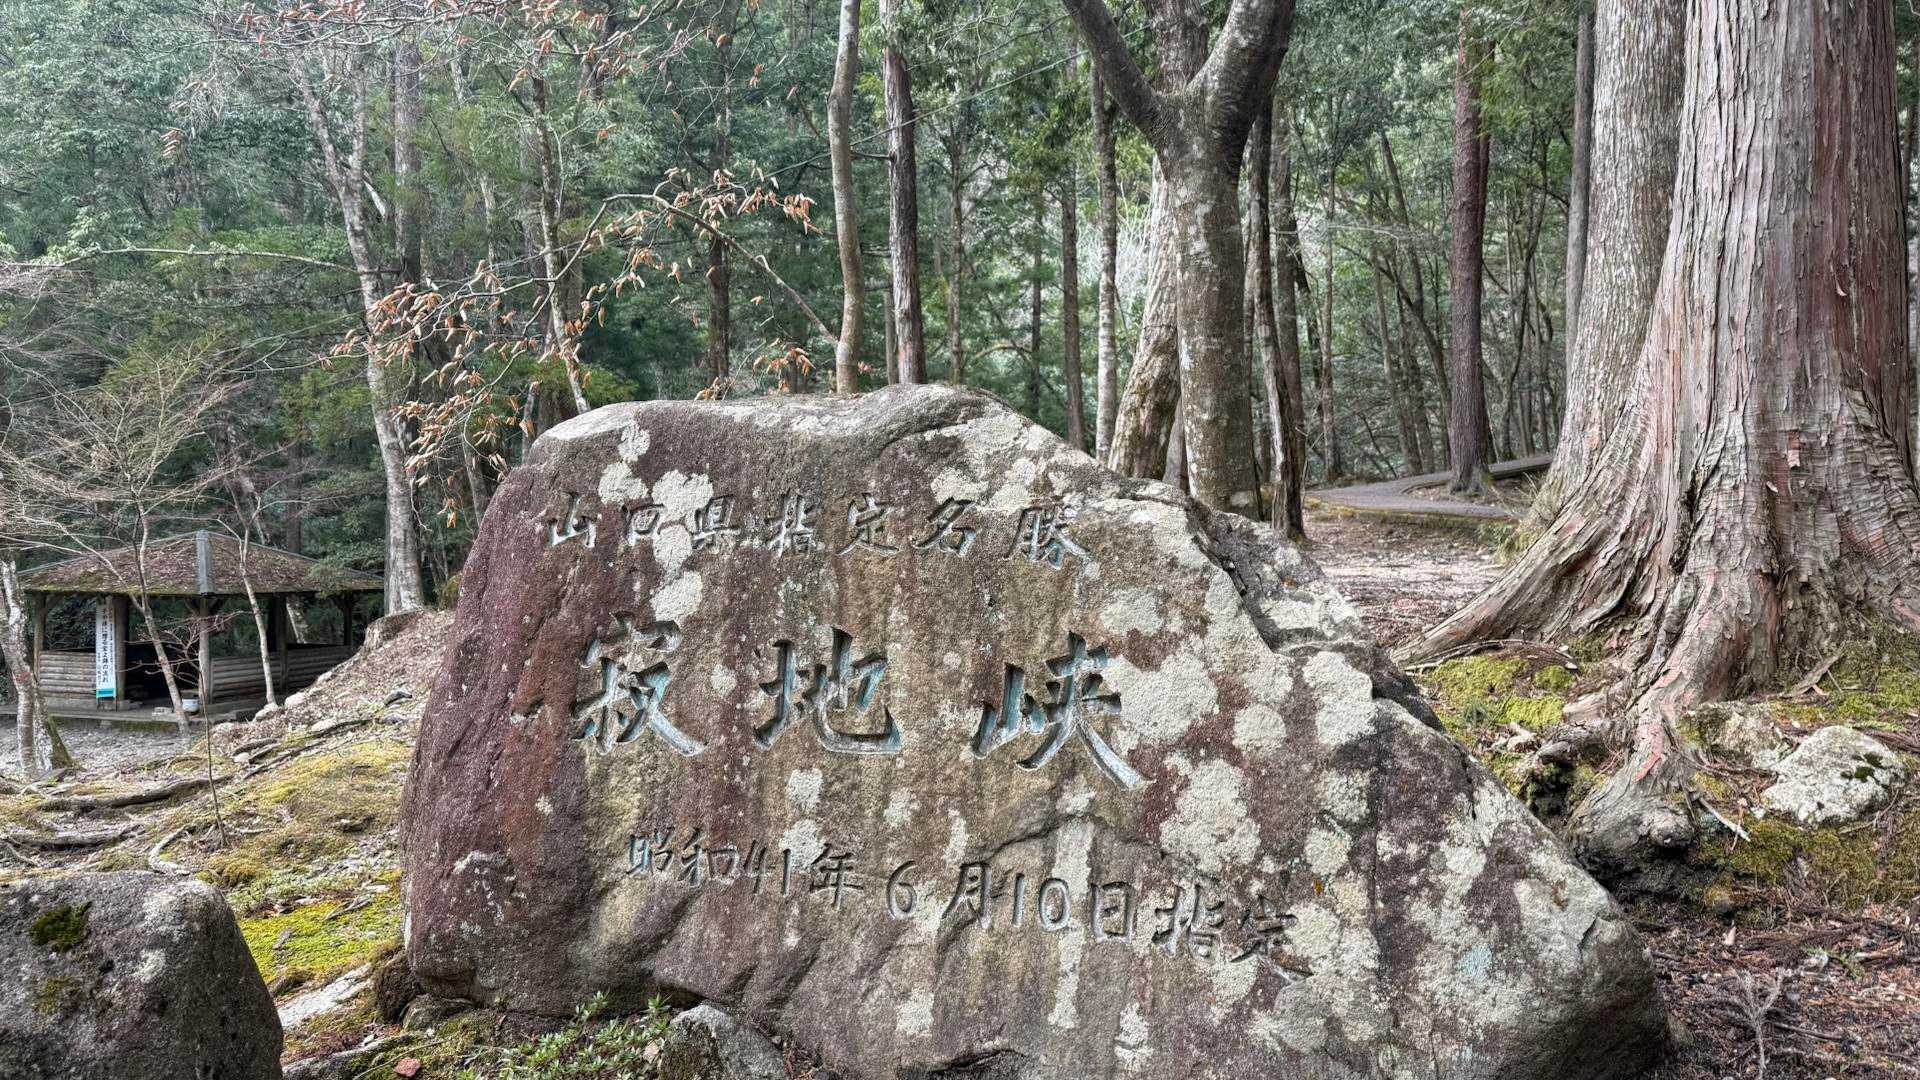 山口県指定名勝
寂地峡
昭和41年6月10日指定